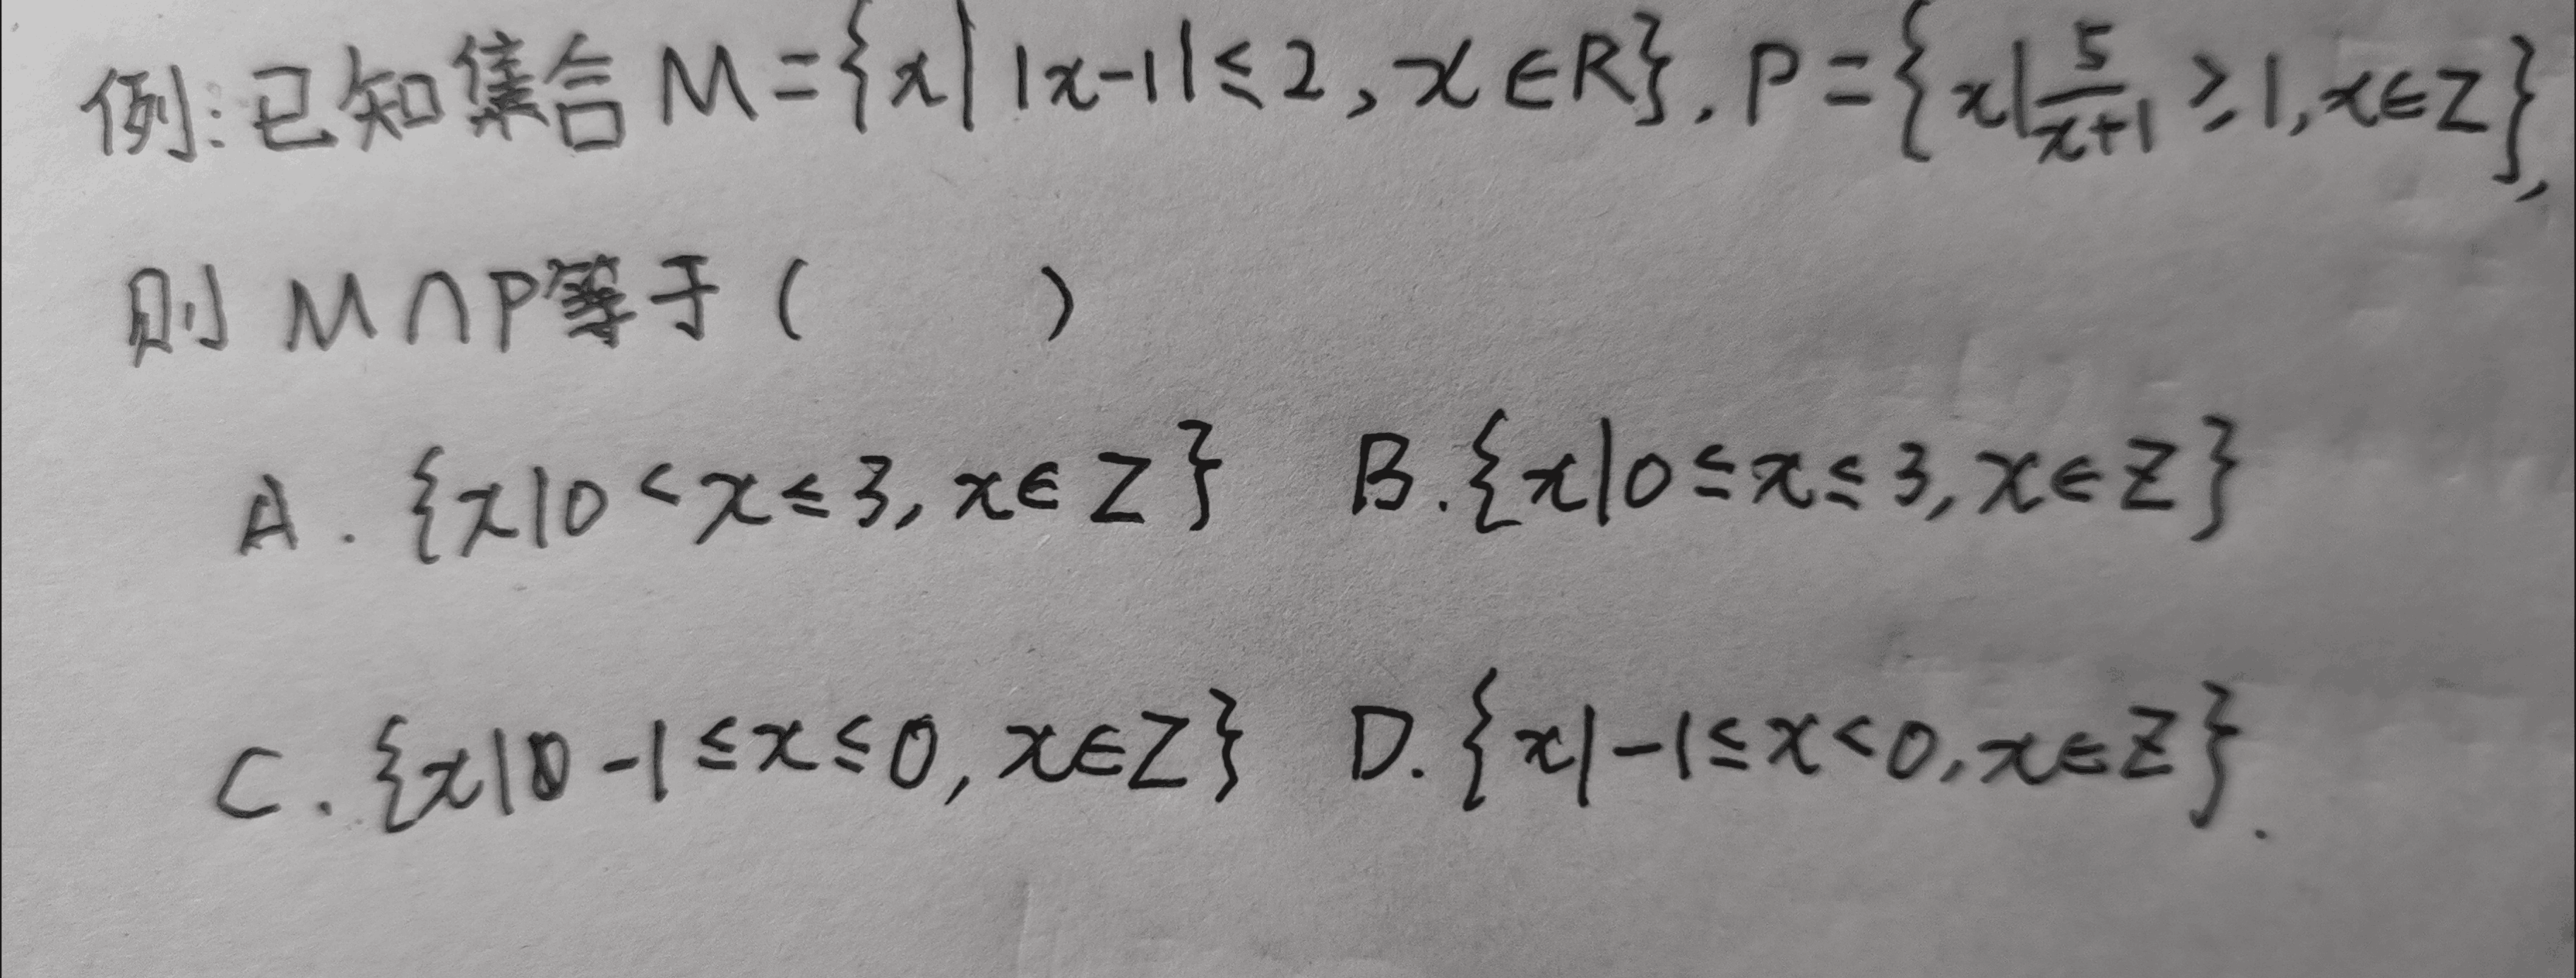 例:已知集合M={x||x-1|≤2,x∈R},P={x|5/(x+1)≥1,x∈Z},
则M∩P等于( )
A.{x|0<x≤3,x∈Z} B.{x|0≤x≤3,x∈Z}
C.{x|-1≤x≤0,x∈Z} D.{x|-1≤x<0,x∈Z}.